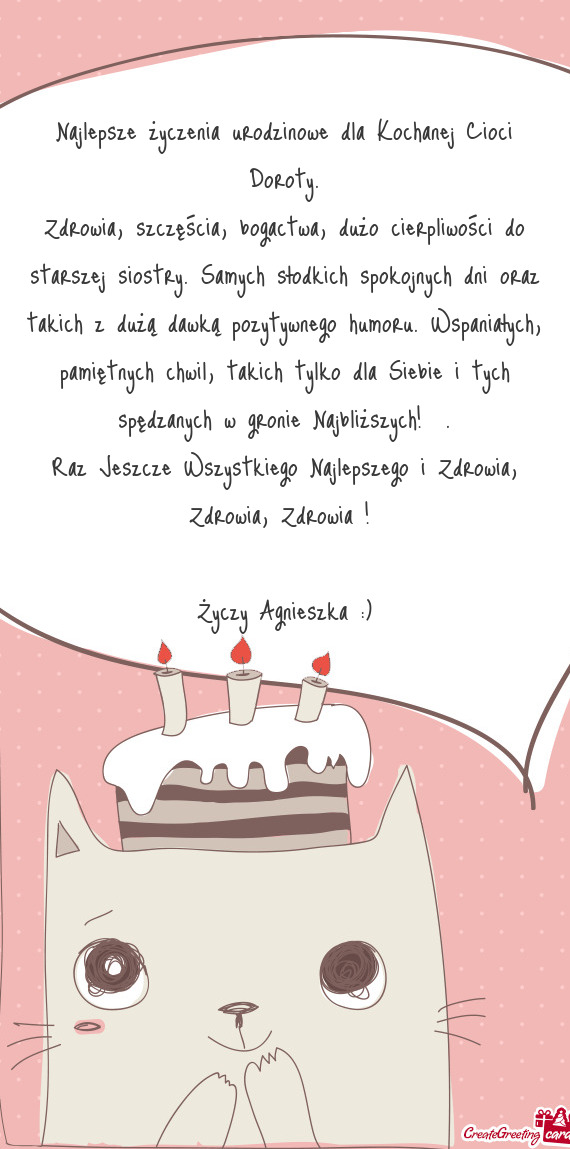 Najlepsze życzenia urodzinowe dla Kochanej Cioci
Doroty.
Zdrowia, szczęścia, bogactwa, dużo cierpliwości do
starszej siostry. Samych słodkich spokojnych dni oraz
takich z dużą dawką pozytywnego humoru. Wspaniałych,
pamiętnych chwil, takich tylko dla Siebie i tych
spędzanych w gronie Najbliższych! .
Raz Jeszcze Wszystkiego Najlepszego i Zdrowia,
Zdrowia, Zdrowia !
Życzy Agnieszka :)
CreateGreeting card